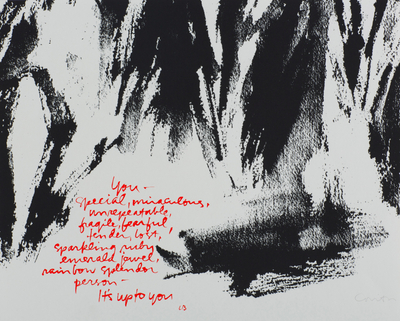 You —
special, miraculous,
unrepeatable,
fragile, fearful,
tender, lost,
sparkling ruby
emerald jewel,
rainbow splendor
person —
It's up to you